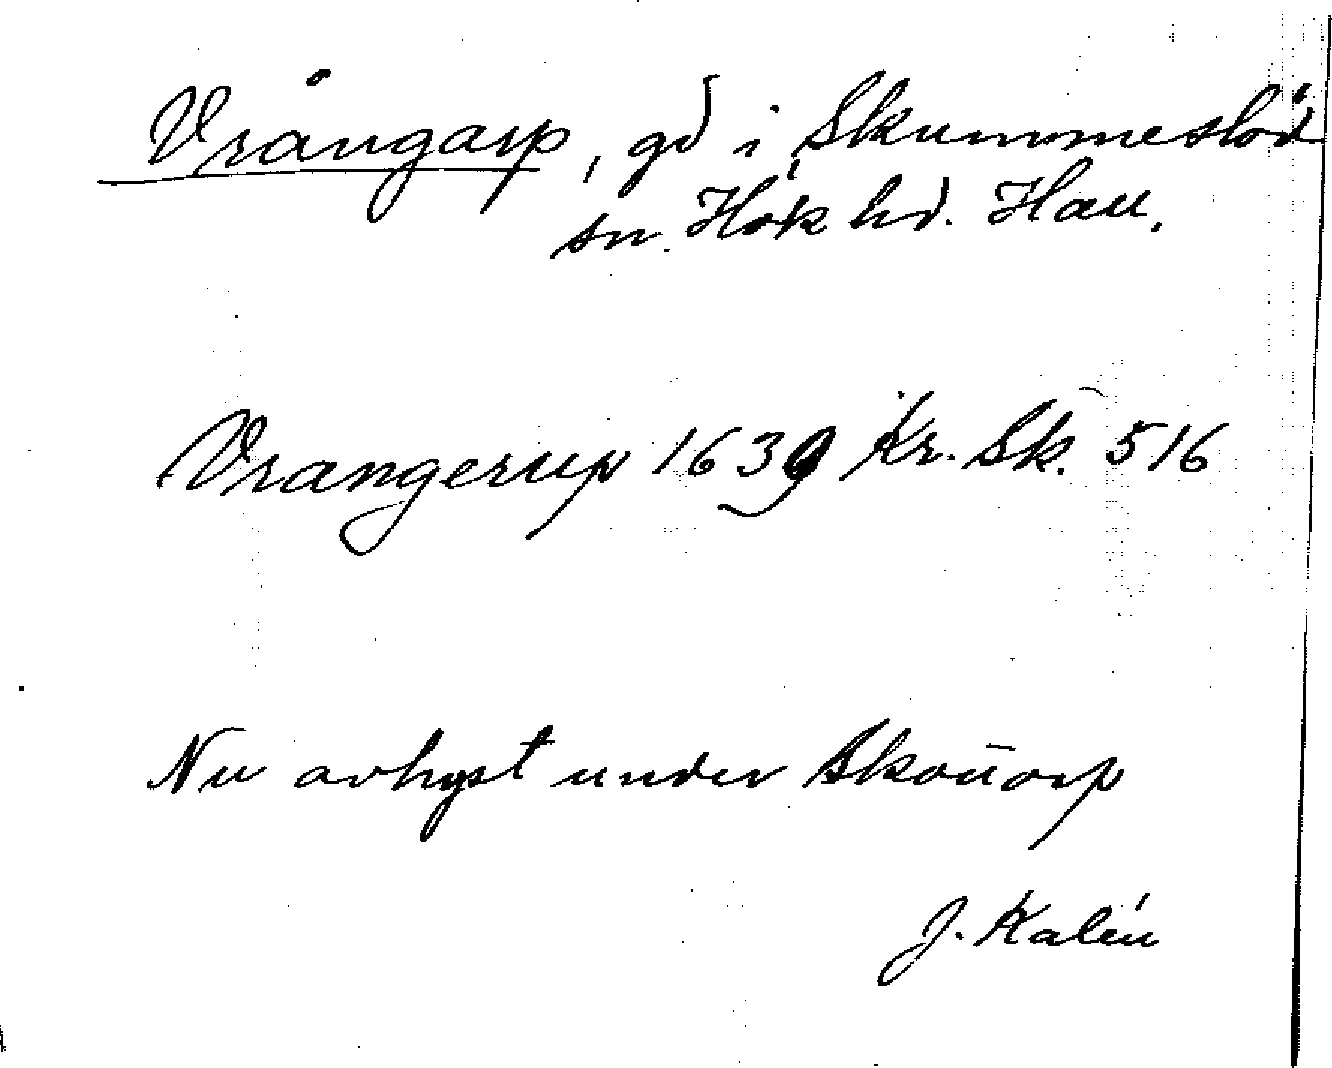 Vrångarp, gd i Skummeslöv
sn. Hök hd. Hall.
Vrangerup 1639 Kr. Sk. 516
Nu avhyst under Skottorp
J. Kalén